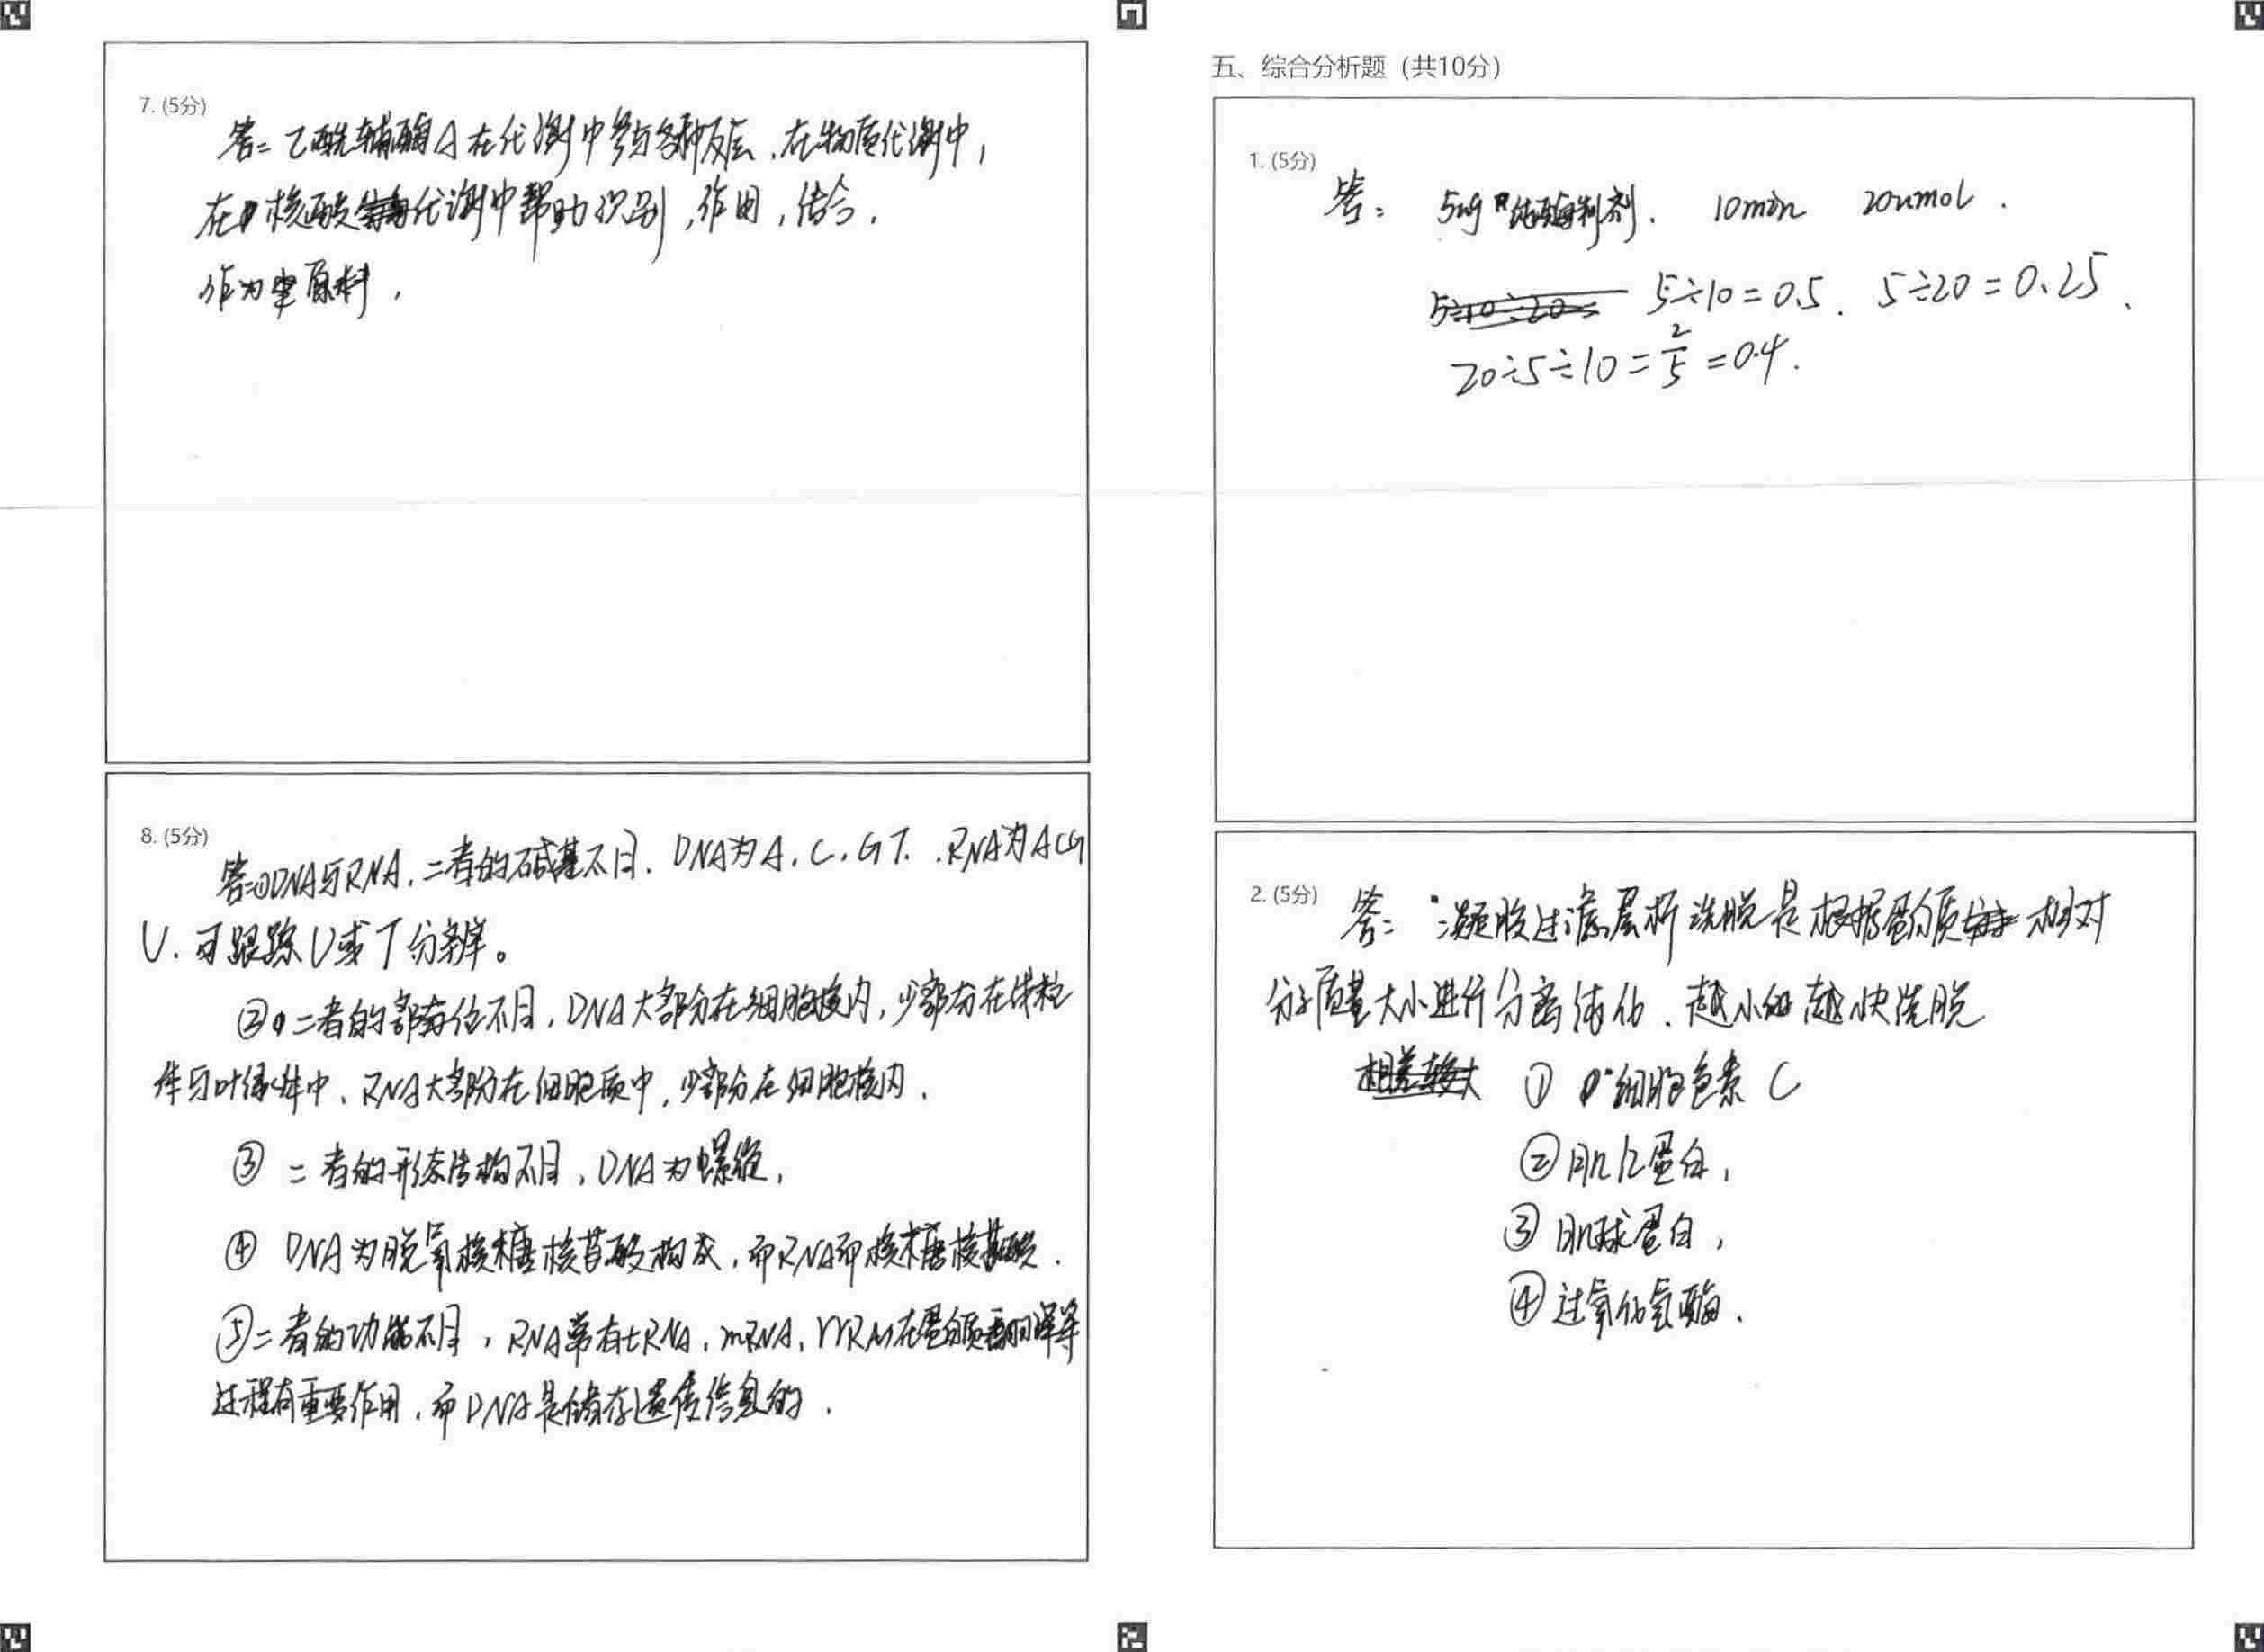 7. (5分)
答: 乙酰辅酶A在代谢中参与各种反应.在物质代谢中,
在核酸代谢中帮助识别,作用,结合.
作为原料,
8. (5分)
答:①DNA与RNA.二者的碱基不同. DNA为A.C.G T. .RNA为ACG
U.可跟踪U或T分辨。
②二者的部位不同,DNA大部分在细胞核内,少部分在线粒
体与叶绿体中、RNA大部分在细胞质中,少部分在细胞核内.
③ 二者的形态结构不同,DNA为螺旋,
④ DNA为脱氧核糖核苷酸构成,而RNA而核糖核苷酸.
⑤二者的功能不同,RNA常有tRNA,mRNA,rRNA在蛋白质翻译等
过程有重要作用.而DNA是储存遗传信息的.
五、综合分析题 (共10分)
1. (5分)
答: 5ug 纯酶制剂. 10min 20umol.
5÷10=0.5. 5÷20=0.25.
20÷5÷10=2/5=0.4.
2. (5分)
答: 凝胶过滤层析洗脱是根据蛋白质相对
分子质量大小进行分离纯化.越小的越快洗脱
① 细胞色素 C
②肌红蛋白,
③肌球蛋白,
④过氧化氢酶.